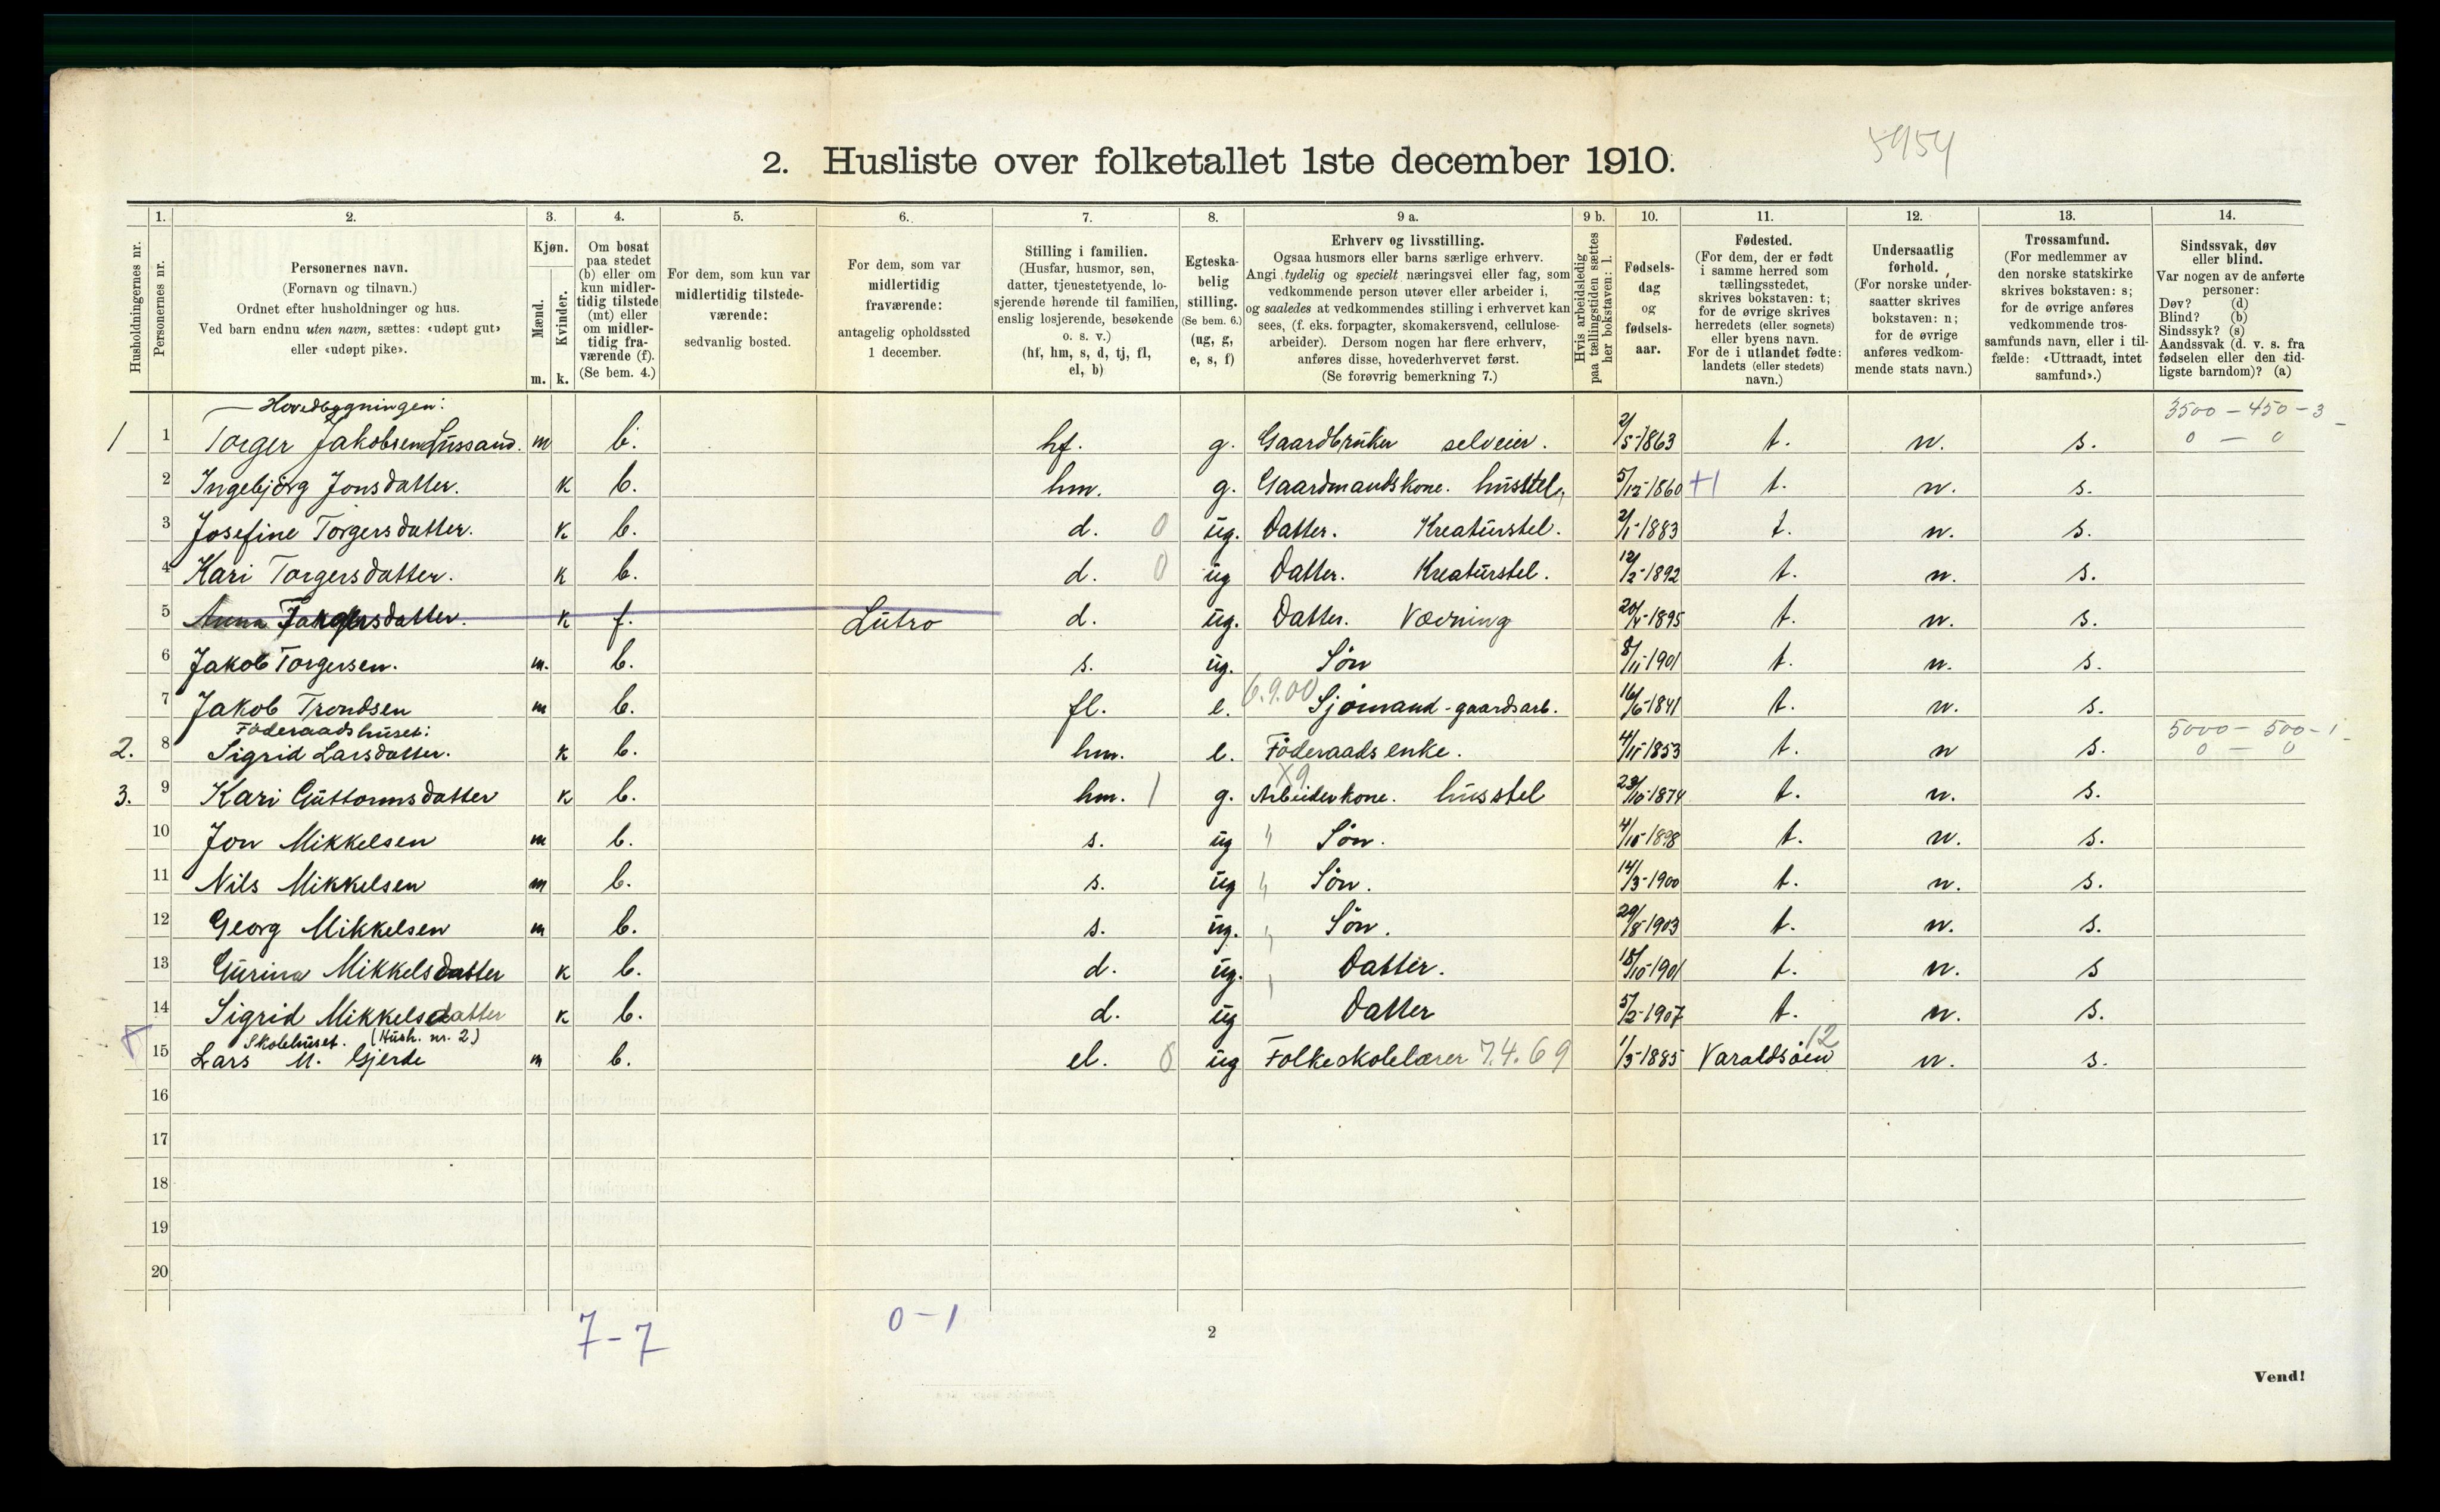 5954
2. Husliste over folketallet 1ste december 1910.
Husholdningernes nr.
1.
Personernes nr.
2.
Personernes navn.
(Fornavn og tilnavn.)
Ordnet efter husholdninger og hus.
Ved barn endnu uten navn, sættes: «udøpt gut»
eller «udøpt pike».
3.
Kjøn.
Mænd.
Kvinder.
m. k.
4.
Om bosat
paa stedet
(b) eller om
kun midler-
tidig tilstede
(mt) eller
om midler-
tidig fra-
værende (f).
(Se bem. 4.)
5.
For dem, som kun var
midlertidig tilstede-
værende:
sedvanlig bosted.
6.
For dem, som var
midlertidig
fraværende:
antagelig opholdssted
1 december.
7.
Stilling i familien.
(Husfar, husmor, søn,
datter, tjenestetyende, lo-
sjerende hørende til familien,
enslig losjerende, besøkende
o. s. v.)
(hf, hm, s, d, tj, fl,
el, b)
8.
Egteska-
belig
stilling.
(Se bem. 6.)
(ug, g,
e, s, f)
9 a.
Erhverv og livsstilling.
Ogsaa husmors eller barns særlige erhverv.
Angi tydelig og specielt næringsvei eller fag, som
vedkommende person utøver eller arbeider i,
og saaledes at vedkommendes stilling i erhvervet kan
sees, (f. eks. forpagter, skomakersvend, cellulose-
arbeider). Dersom nogen har flere erhverv,
anføres disse, hovederhvervet først.
(Se forøvrig bemerkning 7.)
9 b.
Hvis arbeidsledig
paa tællingstiden sættes
her bokstaven: l.
10.
Fødsels-
dag
og
fødsels-
aar.
11.
Fødested.
(For dem, der er født
i samme herred som
tællingsstedet,
skrives bokstaven: t;
for de øvrige skrives
herredets (eller sognets)
eller byens navn.
For de i utlandet fødte:
landets (eller stedets)
navn.)
12.
Undersaatlig
forhold.
(For norske under-
saatter skrives
bokstaven: n;
for de øvrige
anføres vedkom-
mende stats navn.)
13.
Trossamfund.
(For medlemmer av
den norske statskirke
skrives bokstaven: s;
for de øvrige anføres
vedkommende tros-
samfunds navn, eller i til-
fælde: «Uttraadt, intet
samfund».)
14.
Sindssvak, døv
eller blind.
Var nogen av de anførte
personer:
Døv? (d)
Blind? (b)
Sindssyk? (s)
Aandssvak (d. v. s. fra
fødselen eller den tid-
ligste barndom)? (a)
Hovedbygningen: 3500 - 450 - 3
1 1 Torger Jakobsen Lussand. m b. hf. g. Gaardbruker selveier. 2/5-1863 t. n. s. 0 - 0
2 Ingebjörg Jonsdatter. k b. hm. g. Gaardmandskone. husstel, 5/12-1860 +1 t. n. s.
3 Josefine Torgersdatter. k b. d. 0 ug. Datter. Kreaturstel. 2/1-1883 t. n. s.
4 Kari Torgersdatter. k b. d. 0 ug Datter. Kreaturstel. 12/2-1892 t. n. s.
5 Anna Torgersdatter. k f. Lutro d. ug. Datter. Vævning 1895 t. n. s.
6 Jakob Torgersen. m. b. s. ug. Sön 8/11-1901 t. n. s.
7 Jakob Trondsen m b. fl. e. 6.9.00 Sjömand - gaardsarb. 16/6-1841 t. n. s.
Föderaadshuset: 5000 - 500 - 1
2. 8 Sigrid Larsdatter. k b. hm. e. Föderaadsenke. 1853 t. n s. 0 - 0
x9
3. 9 Kari Guttormsdatter k b. hm. 1 g. Arbeiderkone. husstel 23/10-1874 t. n. s.
10 Jon Mikkelsen m b. s. ug " Sön. 4/10-1898 t. n. s.
11 Nils Mikkelsen m b. s. ug " Sön. 14/3-1900 t. n. s.
12 Georg Mikkelsen m b. s. ug. " Sön. 29/8-1903 t. n. s.
13 Gurina Mikkelsdatter k b. d. ug. " Datter. 1901 t. n. s
14 Sigrid Mikkelsdatter k b. d. ug Datter 5/2-1907 t. n. s.
Skolehuset. (Hush. nr. 2) 12
15 Lars M. Gjerde m b. el. 0 ug Folkeskolelærer 7.4.69 1/5-1885 Varaldsöen n. s.
16
17
18
19
20
7-7 0-1
2
Vend!